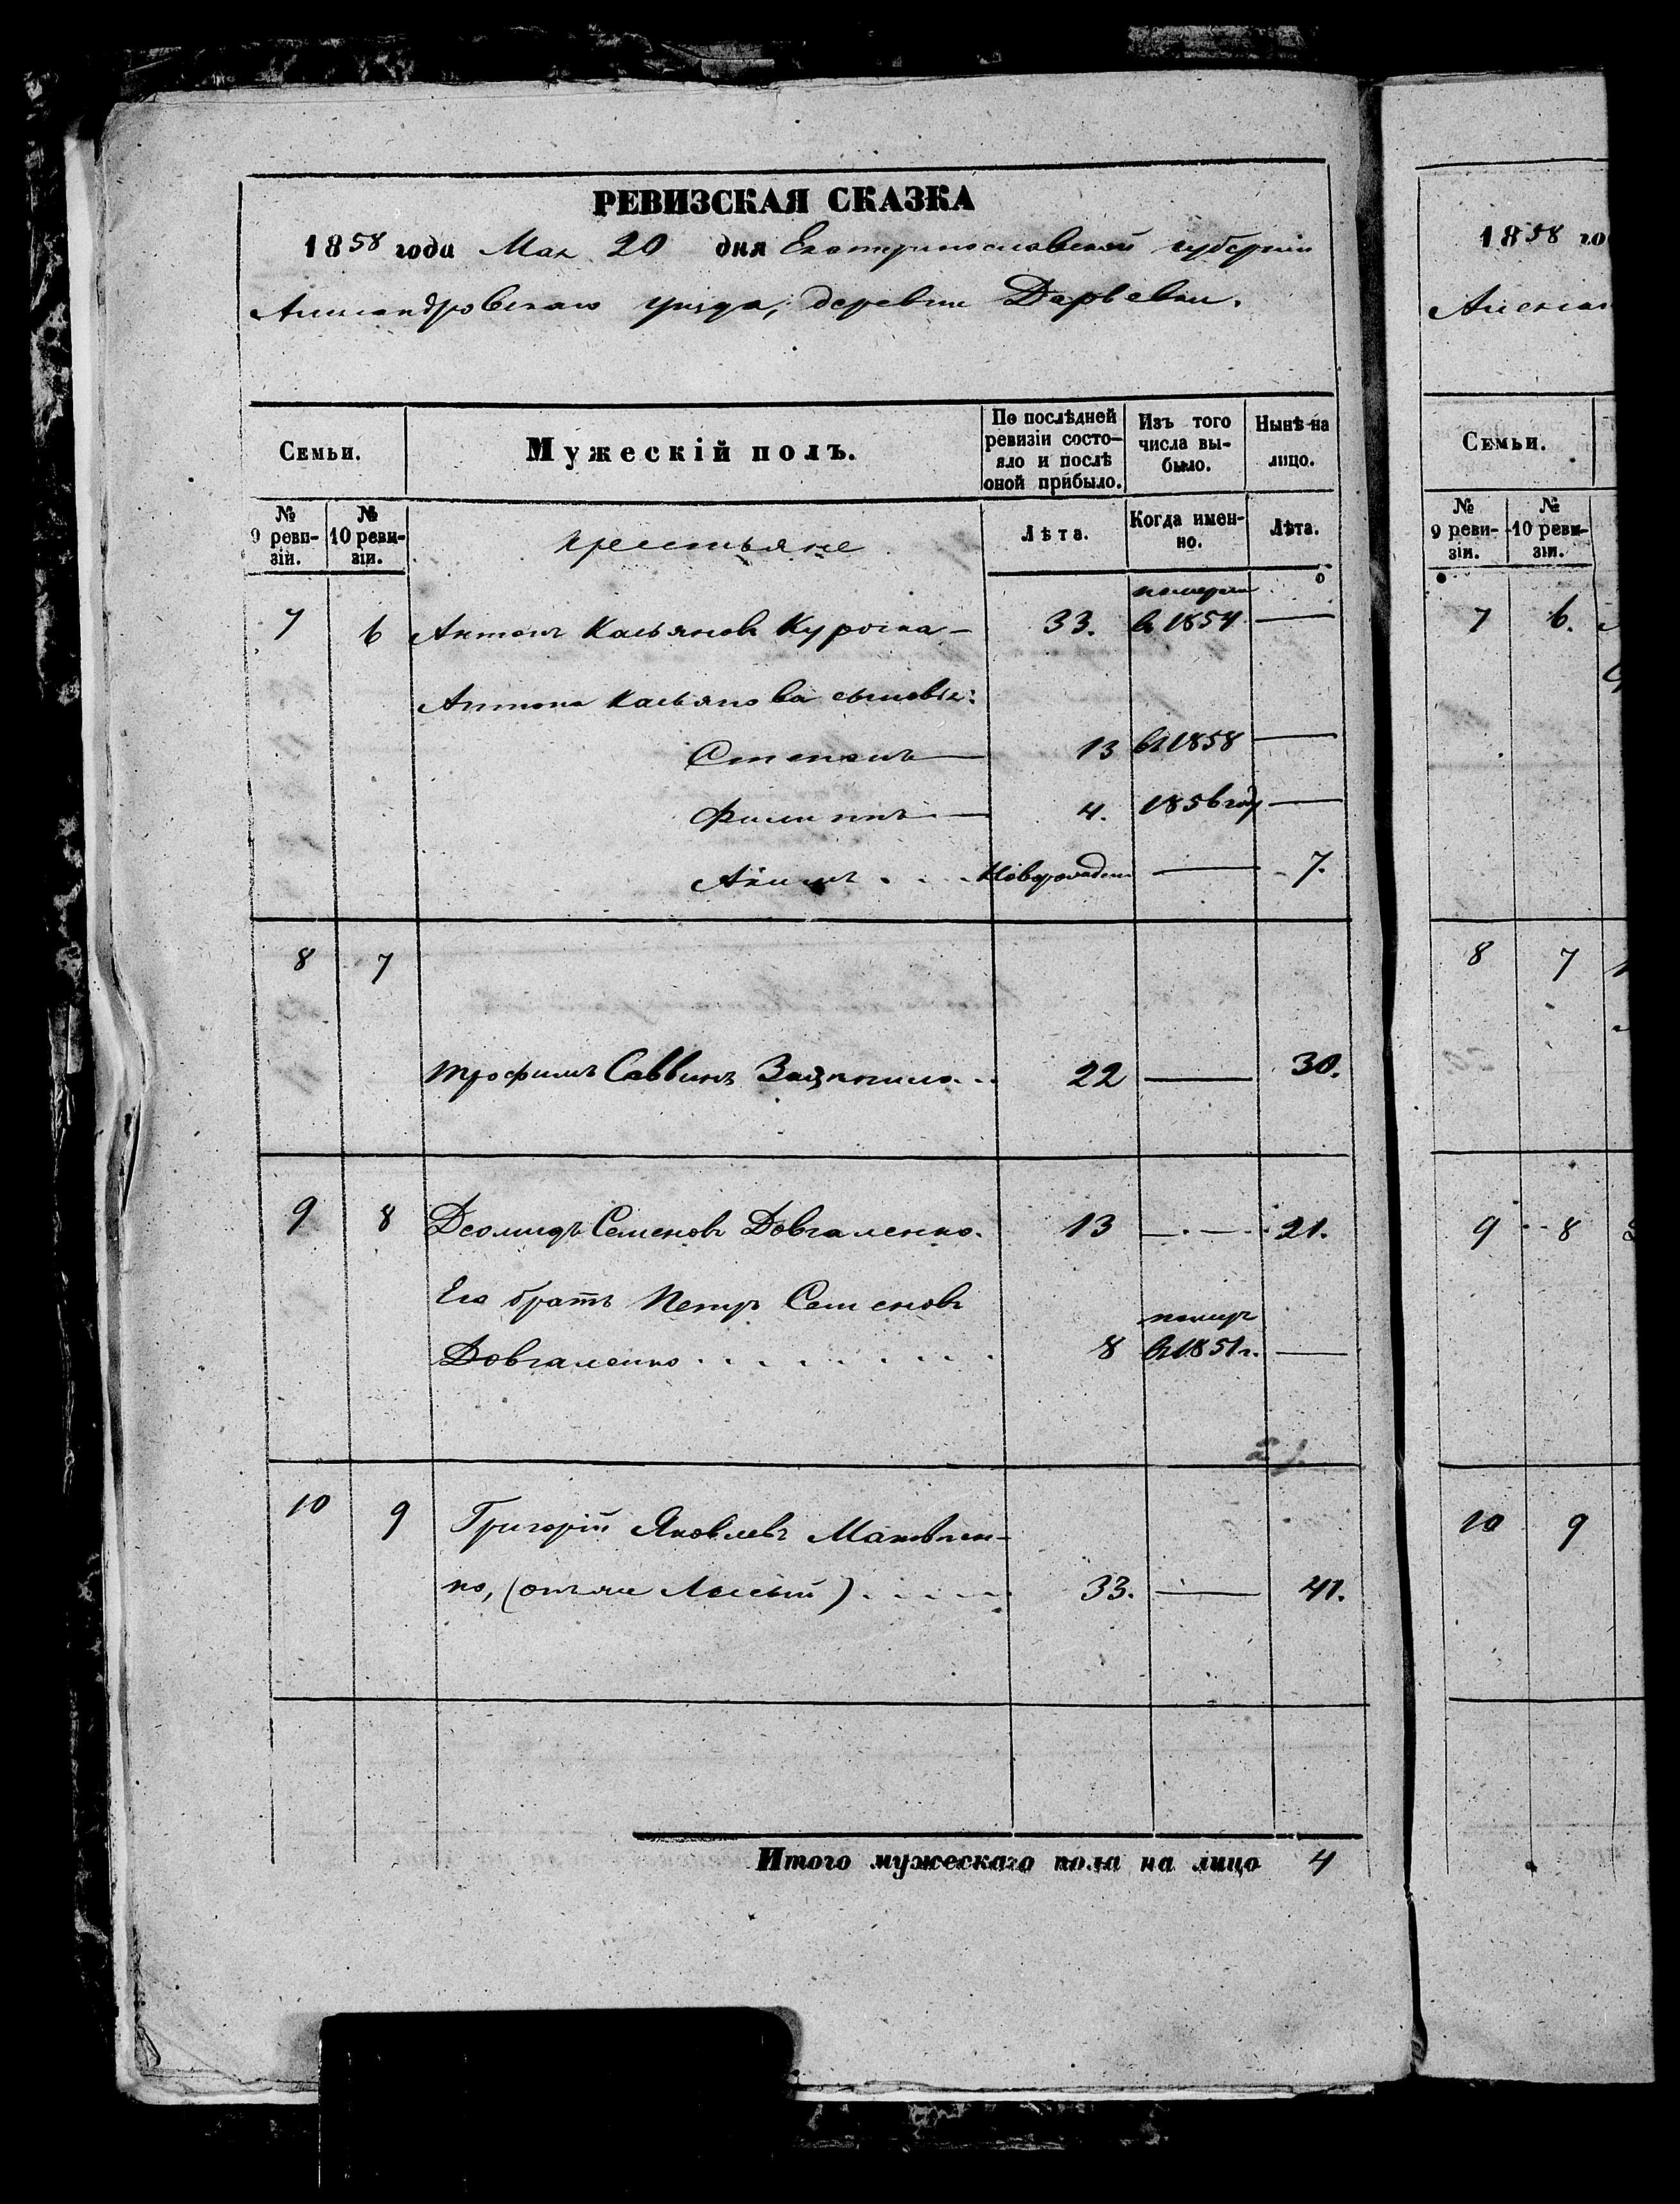 РЕВИЗСКАЯ СКАЗКА
1858 года Мая 20 дня Екатеринославской губерніи
Александровскаго уезда, деревни Дарьевки.
Семьи.
Мужескій полъ.
По послѣдней ревизіи состояло и послѣ оной прибыло.
Изъ того числа выбыло.
Нынѣ на лицо.
№ 9 ревизіи.
№ 10 ревизіи.
крестьяне
Лѣта.
Когда именно.
Лѣта.
померли
7 6 Антонъ Касьяновъ Куроска — 33. въ 1854 —
Антона Касьянова сыновья:
Степанъ — 13 въ 1858 —
Филиппъ — 4. 1856 году —
Акимъ . . . Новорожден — 7.
8 7
Трофимъ Саввинъ 22 — 30.
9 8 Деомидъ Семеновъ Довгаленко. 13 — 21.
Его братъ Петръ Семеновъ
помер
Довгаленко . . . . . . . . 8 въ 1851 г. —
10 9 Григорій Яковлевъ Маковлен-
ко, (онъ же Лысый) . . . . 33. — 41.
Итого мужескаго пола на лицо 4
1858 го
Алексан
Семьи.
№ 9 ревизіи.
№ 10 ревизіи.
7 6.
8 7
9 8
10 9